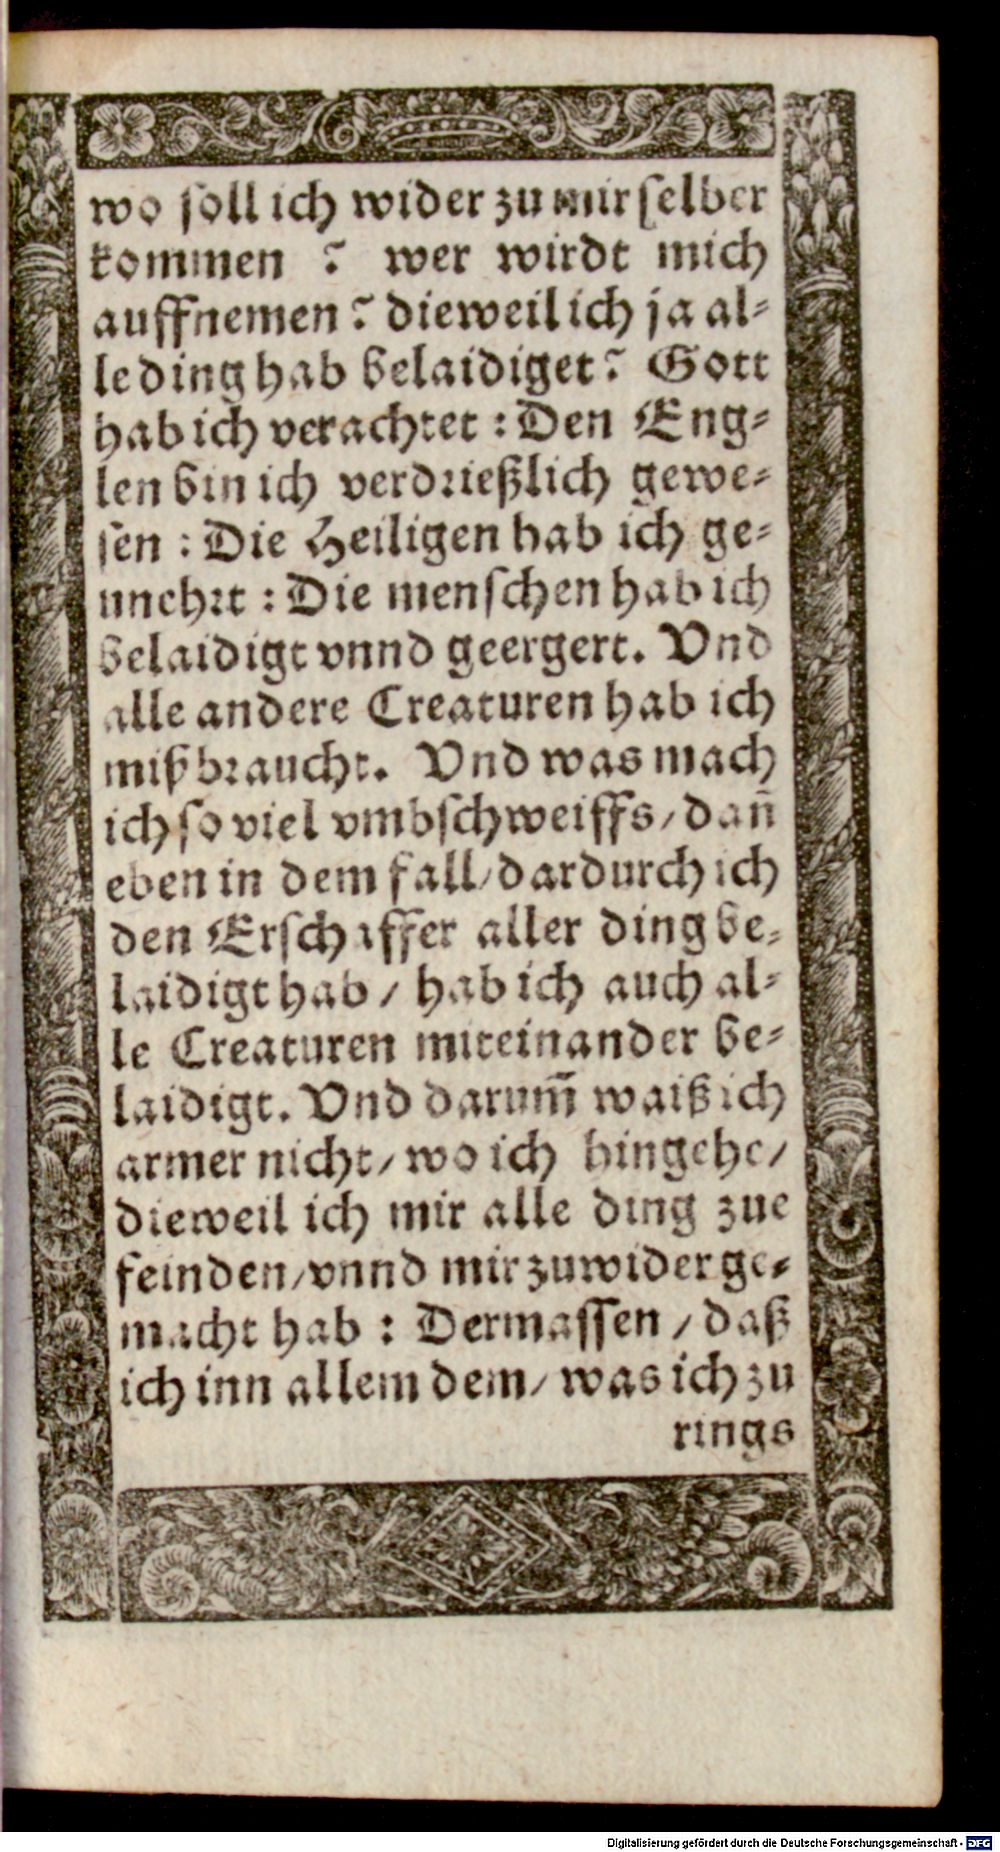 wo soll ich wider zu mir selber
kommen ? wer wirdt mich
auffnemen ? dieweil ich ja al-
le ding hab belaidiget ? Gott
hab ich verachtet : Den Eng-
len bin ich verdrießlich gewe-
sen : Die Heiligen hab ich ge-
unehrt : Die menschen hab ich
belaidigt vnnd geergert. Vnd
alle andere Creaturen hab ich
mißbraucht. Vnd was mach
ich so viel vmbschweiffs / dañ
eben in dem fall / dardurch ich
den Erschaffer aller ding be-
laidigt hab / hab ich auch al-
le Creaturen miteinander be-
laidigt. Vnd darum̄ waiß ich
armer nicht / wo ich hingehe /
dieweil ich mir alle ding zue
feinden / vnnd mir zuwider ge-
macht hab : Dermassen / daß
ich inn allem dem / was ich zu
rings
Digitalisierung gefördert durch die Deutsche Forschungsgemeinschaft - DFG